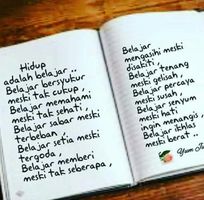 Hidup
adalah belajar ..
Belajar bersyukur
meski tak cukup ,
Belajar memahami
meski tak sehati ,
Belajar sabar meski
terbeban ,
Belajar setia meski
tergoda ,
Belajar memberi
meski tak seberapa ,
Belajar
mengasihi meski
disakiti ,
Belajar tenang
meski gelisah ,
Belajar percaya
meski susah ,
Belajar senyum
meski hati
ingin menangis ,
Belajar ikhlas
meski berat ..